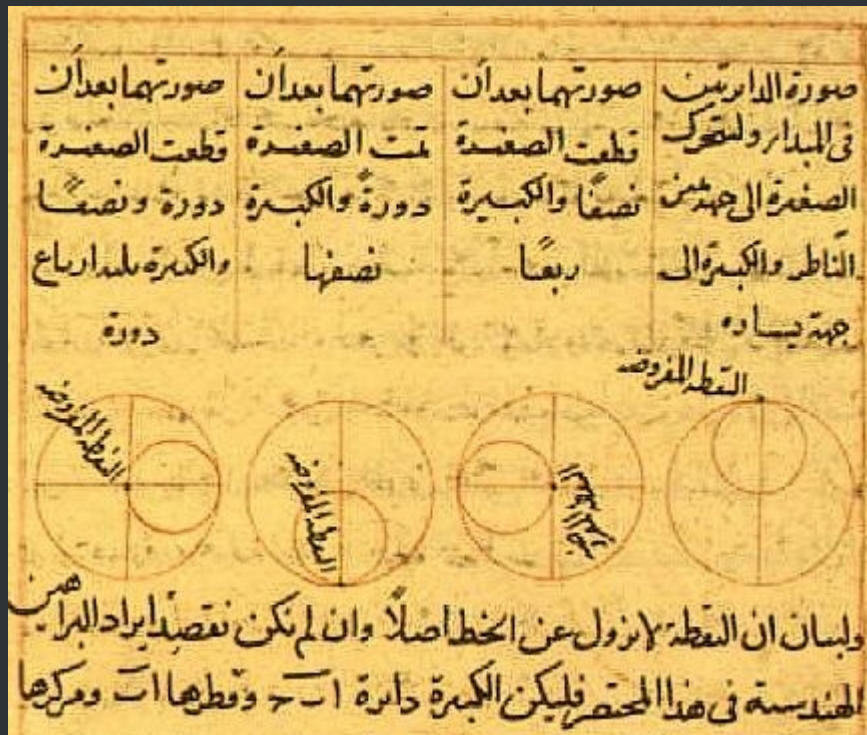 صورة الدائرتين
في المبدا ولتتحرك
الصغيرة الى جهة يمين
الناظر والكبيرة الى
جهة يساره
صورتهما بعد أن
قطعت الصغيرة
نصفًا والكبيرة
ربعًا
صورتهما بعد أن
تمت الصغيرة
دورةً والكبيرة
نصفها
صورتهما بعد أن
قطعت الصغيرة
دورة ونصفًا
والكبيرة ثلثة ارباع
دورة
النقطة المفروضة
النقطة المفروضة
النقطة المفروضة
ولبيان ان النقطة لا تزول عن الخط اصلًا وان لم نكن نقصد ايراد البراهين
الهندسية في هذا المختصر فليكن الكبيرة دائرة ا ب ح وقطرها ا ب ومركزها